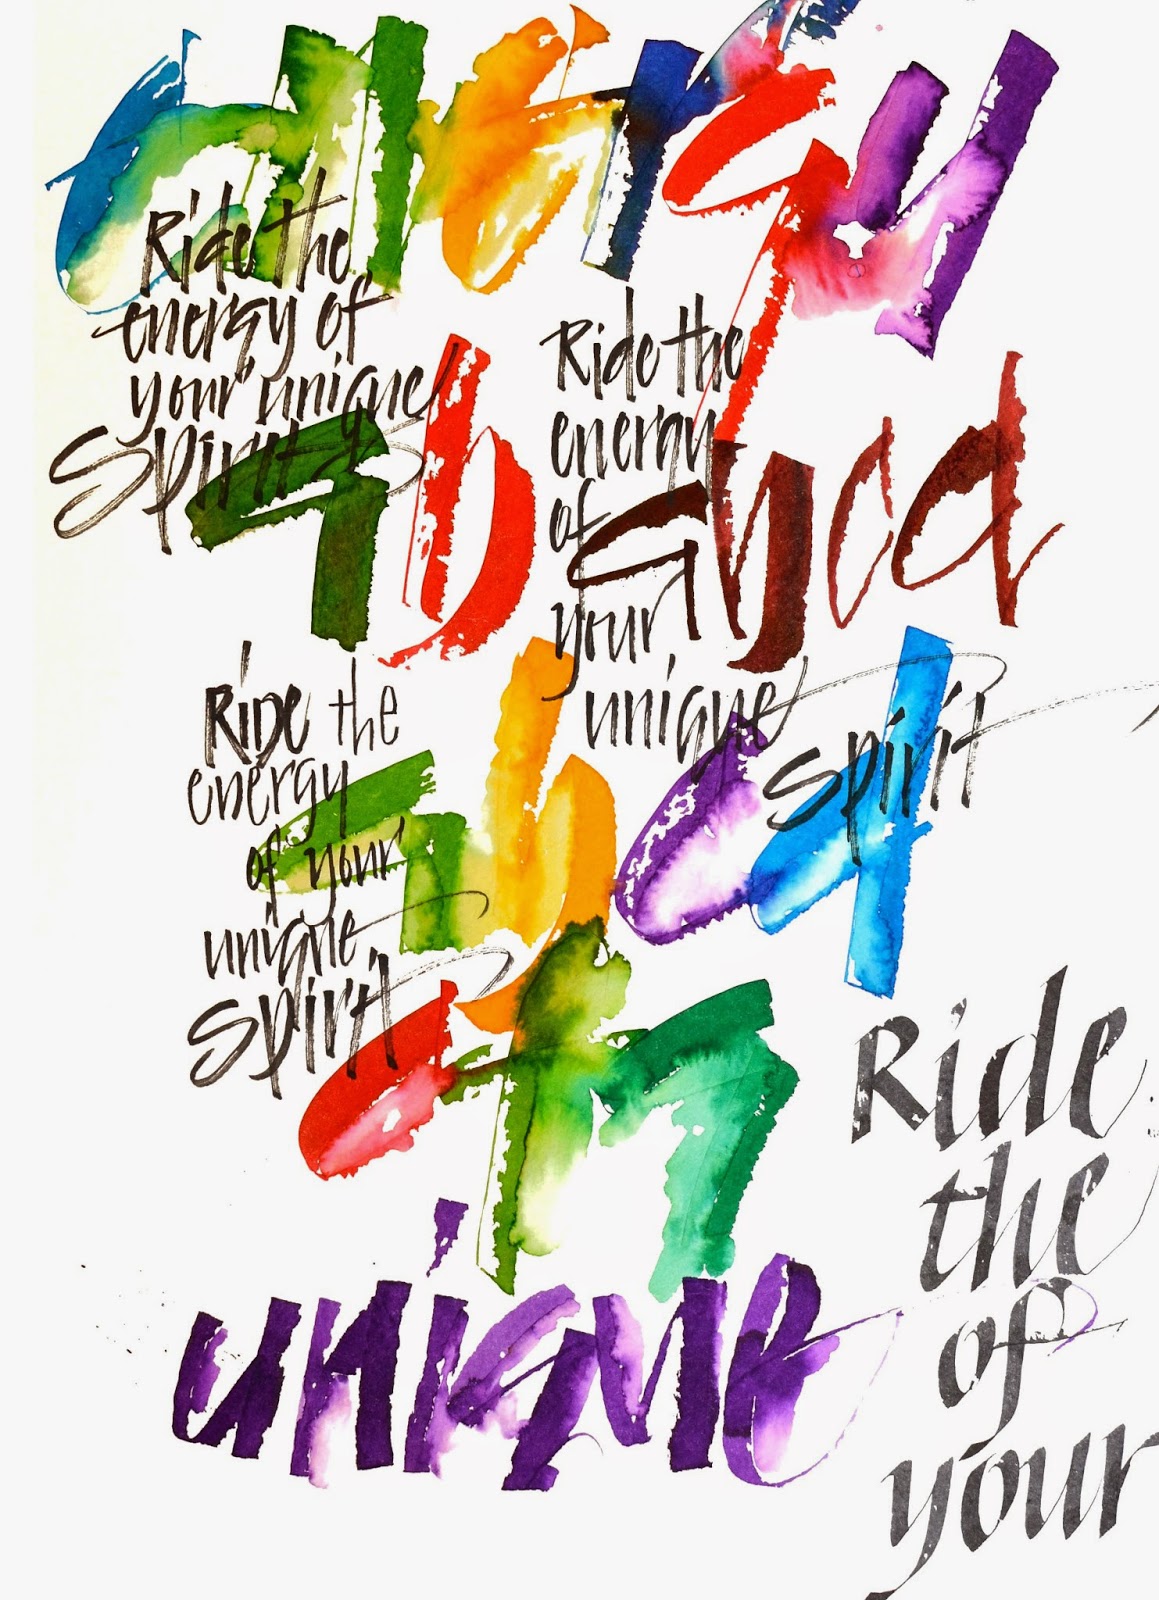 energy
Ride the
energy of
your unique
spirit
Ride the
energy
of
your
unique
spirit
a b
Ride the
energy
of your
unique
spirit
a b c d
unique
Ride
the
of
your